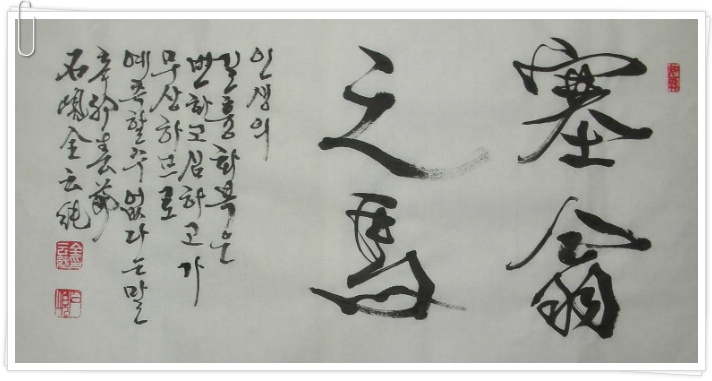 塞翁
之馬
인생의
길흉화복은
변화고심하고가
무상하므로
예측할수없다는말
辛卯春節
石
金云純